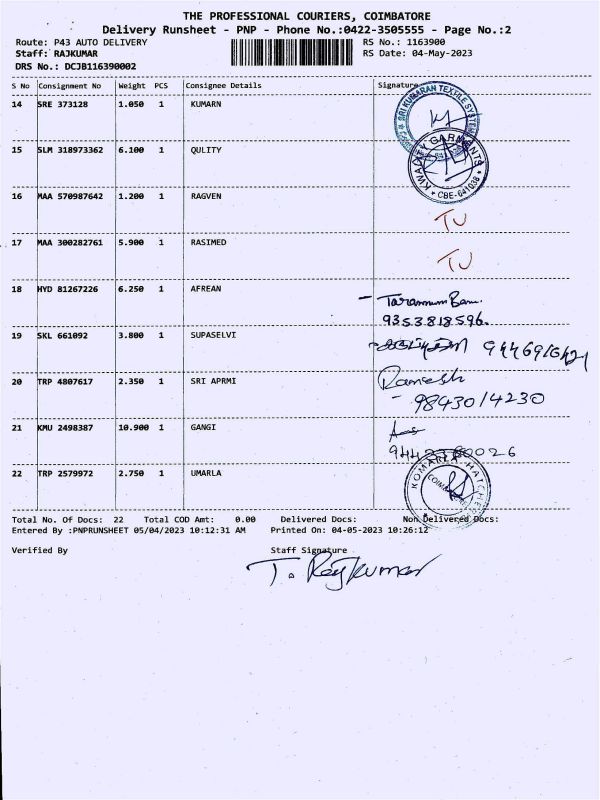 THE PROFESSIONAL COURIERS, COIMBATORE
Delivery Runsheet - PNP - Phone No.:0422-3505555 - Page No.:2
Route: P43 AUTO DELIVERY
RS No.: 1163900
Staff: RAJKUMAR
RS Date: 04-May-2023
DRS No.: DCJB116390002
S No Consignment No Weight PCS Consignee Details Signature
14 SRE 373128 1.050 1 KUMARN
SRI KUMARAN TEXTILE SYSTEMS
15 SLM 318973362 6.100 1 QULITY
KWALITY GARMENTS
* CBE-641038 *
16 MAA 570987642 1.200 1 RAGVEN
TU
17 MAA 300282761 5.900 1 RASIMED
TU
18 HYD 81267226 6.250 1 AFREAN
- Tarannum Banu.
9353818596.
19 SKL 661092 3.800 1 SUPASELVI
20 TRP 4807617 2.350 1 SRI APRMI
Ramesh
- 9843014230
21 KMU 2498387 10.900 1 GANGI
22 TRP 2579972 2.750 1 UMARLA
KOMARLA HATCHERIES
Total No. Of Docs: 22 Total COD Amt: 0.00 Delivered Docs: Non Delivered Docs:
Entered By :PNPRUNSHEET 05/04/2023 10:12:31 AM Printed On: 04-05-2023 10:26:12
Verified By Staff Signature
T. Rajkumar